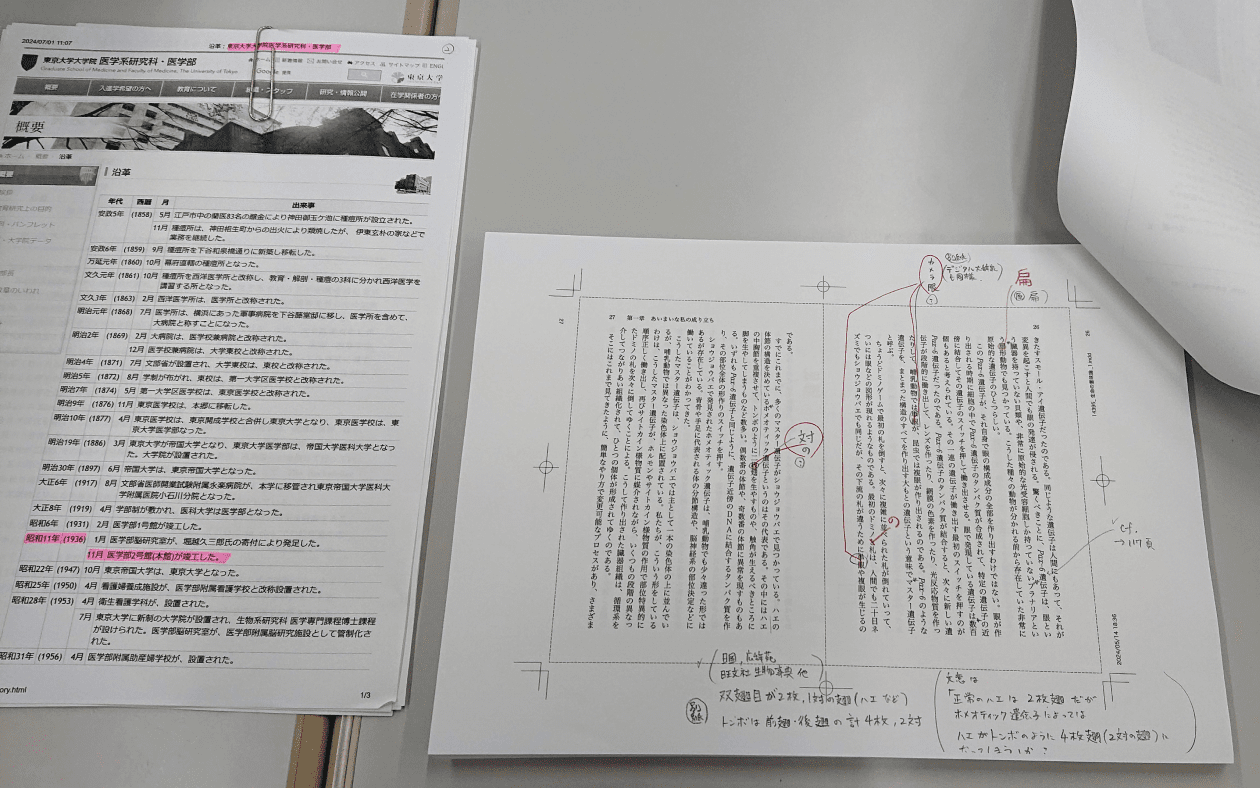 2024/07/01 11:07
沿革：東京大学大学院医学系研究科・医学部
東京大学大学院 医学系研究科・医学部
Graduate School of Medicine and Faculty of Medicine, The University of Tokyo
ホーム 新着情報 お問い合せ アクセス サイトマップ ENGL
Google 東京大学
概要 入進学希望の方へ 教育について 組織・スタッフ 研究・情報公開 在学関係者の方へ
概要
ホーム 概要 沿革
概要
沿革
年代 西暦 月 出来事
安政5年 (1858) 5月 江戸市中の蘭医83名の醵金により神田御玉ケ池に種痘所が設立された。
11月 種痘所は、神田相生町からの出火により類焼したが、伊東玄朴の家などで
業務を継続した。
安政6年 (1859) 9月 種痘所を下谷和泉橋通りに新築し移転した。
万延元年 (1860) 10月 幕府直轄の種痘所となった。
文久元年 (1861) 10月 種痘所を西洋医学所と改称し、教育・解剖・種痘の3科に分かれ西洋医学を
講習する所となった。
文久3年 (1863) 2月 西洋医学所は、医学所と改称された。
明治元年 (1868) 7月 医学所は、横浜にあった軍事病院を下谷藤堂邸に移し、医学所を含めて、
大病院と称すことになった。
明治2年 (1869) 2月 大病院は、医学校兼病院と改称された。
12月 医学校兼病院は、大学東校と改称された。
明治4年 (1871) 7月 文部省が設置され、大学東校は、東校と改称された。
明治5年 (1872) 8月 学制が布かれ、東校は、第一大学区医学校と改称された。
明治7年 (1874) 5月 第一大学区医学校は、東京医学校と改称された。
明治9年 (1876) 11月 東京医学校は、本郷に移転した。
明治10年 (1877) 4月 東京医学校は、東京開成学校と合併し東京大学となり、東京医学校は、東
京大学医学部となった。
明治19年 (1886) 3月 東京大学が帝国大学となり、東京大学医学部は、帝国大学医科大学となっ
た。大学院が設置された。
明治30年 (1897) 6月 帝国大学は、東京帝国大学となった。
大正6年 (1917) 8月 文部省医師開業試験附属永楽病院が、本学に移管され東京帝国大学医科大
学附属医院小石川分院となった。
大正8年 (1919) 4月 学部制が敷かれ、医科大学は医学部となった。
昭和6年 (1931) 2月 医学部1号館が竣工した。
昭和11年 (1936) 1月 医学部脳研究室が、堀越久三郎氏の寄付により発足した。
11月 医学部2号館(本館)が竣工した。
昭和22年 (1947) 10月 東京帝国大学は、東京大学となった。
昭和25年 (1950) 4月 看護婦養成施設が、医学部附属看護学校と改称設置された。
昭和28年 (1953) 4月 衛生看護学科が、設置された。
7月 東京大学に新制の大学院が設置され、生物系研究科 医学専門課程博士課程
が設けられた。医学部脳研究室が、医学部附属脳研究施設として官制化さ
れた。
昭和31年 (1956) 4月 医学部附属助産婦学校が、設置された。
ory.html 1/3
カメラ眼
デジタル大辞泉
も同様
扁
cf.
→117頁
26
きたすスモール・アイ遺伝子だったのである。同じような遺伝子は人間にもあって、それが
変異を起こすと人間でも眼の発達が侵される。驚くべきことに、Pax-6遺伝子は、眼とい
う臓器を持っていない貝類や、非常に原始的な光受容細胞しか持っていないプラナリアとい
う扁形動物でも見つかっている。こうした種々の動物が分かれる前から存在していた非常に
原始的な遺伝子のひとつらしい。
このPax-6遺伝子が、それ自身で眼の構成成分の全部を作り出すわけではない。眼が作
り出される時期に細胞の中でPax-6遺伝子のタンパク質が合成されて、特定の遺伝子の近
傍に結合してその遺伝子のスイッチを押して働き出させる。眼で発現している遺伝子は数百
個もあると考えられている。その一連の遺伝子が働き出す最初のスイッチを押すのが
Pax-6遺伝子だったのである。Pax-6遺伝子のタンパク質が結合すると、次々に新しい遺
伝子が段階的に働き出して、レンズを作ったり、網膜の色素を作ったり、光反応物質を作っ
たりして、哺乳動物では単眼が、昆虫では複眼が作り出されるのである。Pax-6のような
遺伝子を、まとまった構造のすべてを作り出す大もとの遺伝子という意味でマスター遺伝子
と呼ぶ。
ちょうどドミノゲームで最初の札を倒すと、次々に複雑に並べられた札が倒れていって、
ついには眼などの図形が現れるようなものである。最初のドミノの札は、人間でも二十日ネ
ズミでもショウジョウバエでも同じだが、その下流の札が違うために単眼や複眼が生じるの
の
27 第一章 あいまいな私の成り立ち
である。
すでにこれまでに、多くのマスター遺伝子がショウジョウバエで見つかっている。ハエの
体節の構造を決めているホメオティック遺伝子というのはその代表である。その中にはハエ
の中胸節を重複させて、トンボのように二枚翅を生やすものや、触角が生えるべきところに
脚を生やしてしまうものなど数多い。偶数番の体節や、奇数番の体節に異常を現すものもあ
る。いずれもPax-6遺伝子と同じように、遺伝子近傍のDNAに結合するタンパク質を作
り、その部位全体の形作りのスイッチを押す。
ショウジョウバエで発見されたホメオティック遺伝子は、哺乳動物でも少々違った形では
あるが存在している。背骨や手足に代表される体の分節構造や、脳神経系の部位決定などに
働いていることがわかってきた。
こうしたマスター遺伝子は、ショウジョウバエでは主として一本の染色体の上に並んでい
るが、哺乳動物では異なった染色体上に配置されている。私たちが、こういう形をしている
わけは、こうしたマスター遺伝子が、ホルモンやサイトカイン様物質の作用で部位特異的に
順序正しく働き出し、再びサイトカイン様物質に媒介されながら、いくつもの段階の異なっ
たドミノの札を次々に倒してゆくことによる。こうして作り出された臓器組織は、循環系を
介してつながりあい組織化されて、ひとつの個体が形成されてゆくのである。
そこはこれまで見てきたように、簡単なやり方で変更可能なプロセスがあり、さまざま
対の
日国，広辞苑
旺文社 生物事典 他
双翅目が2枚，1対の翅（ハエなど）
トンボは前翅・後翅の計4枚，2対
文意は
「正常のハエは2枚翅だが
ホメオティック遺伝子によっては
ハエがトンボのように4枚翅(2対の翅)に
なってしまう」か？